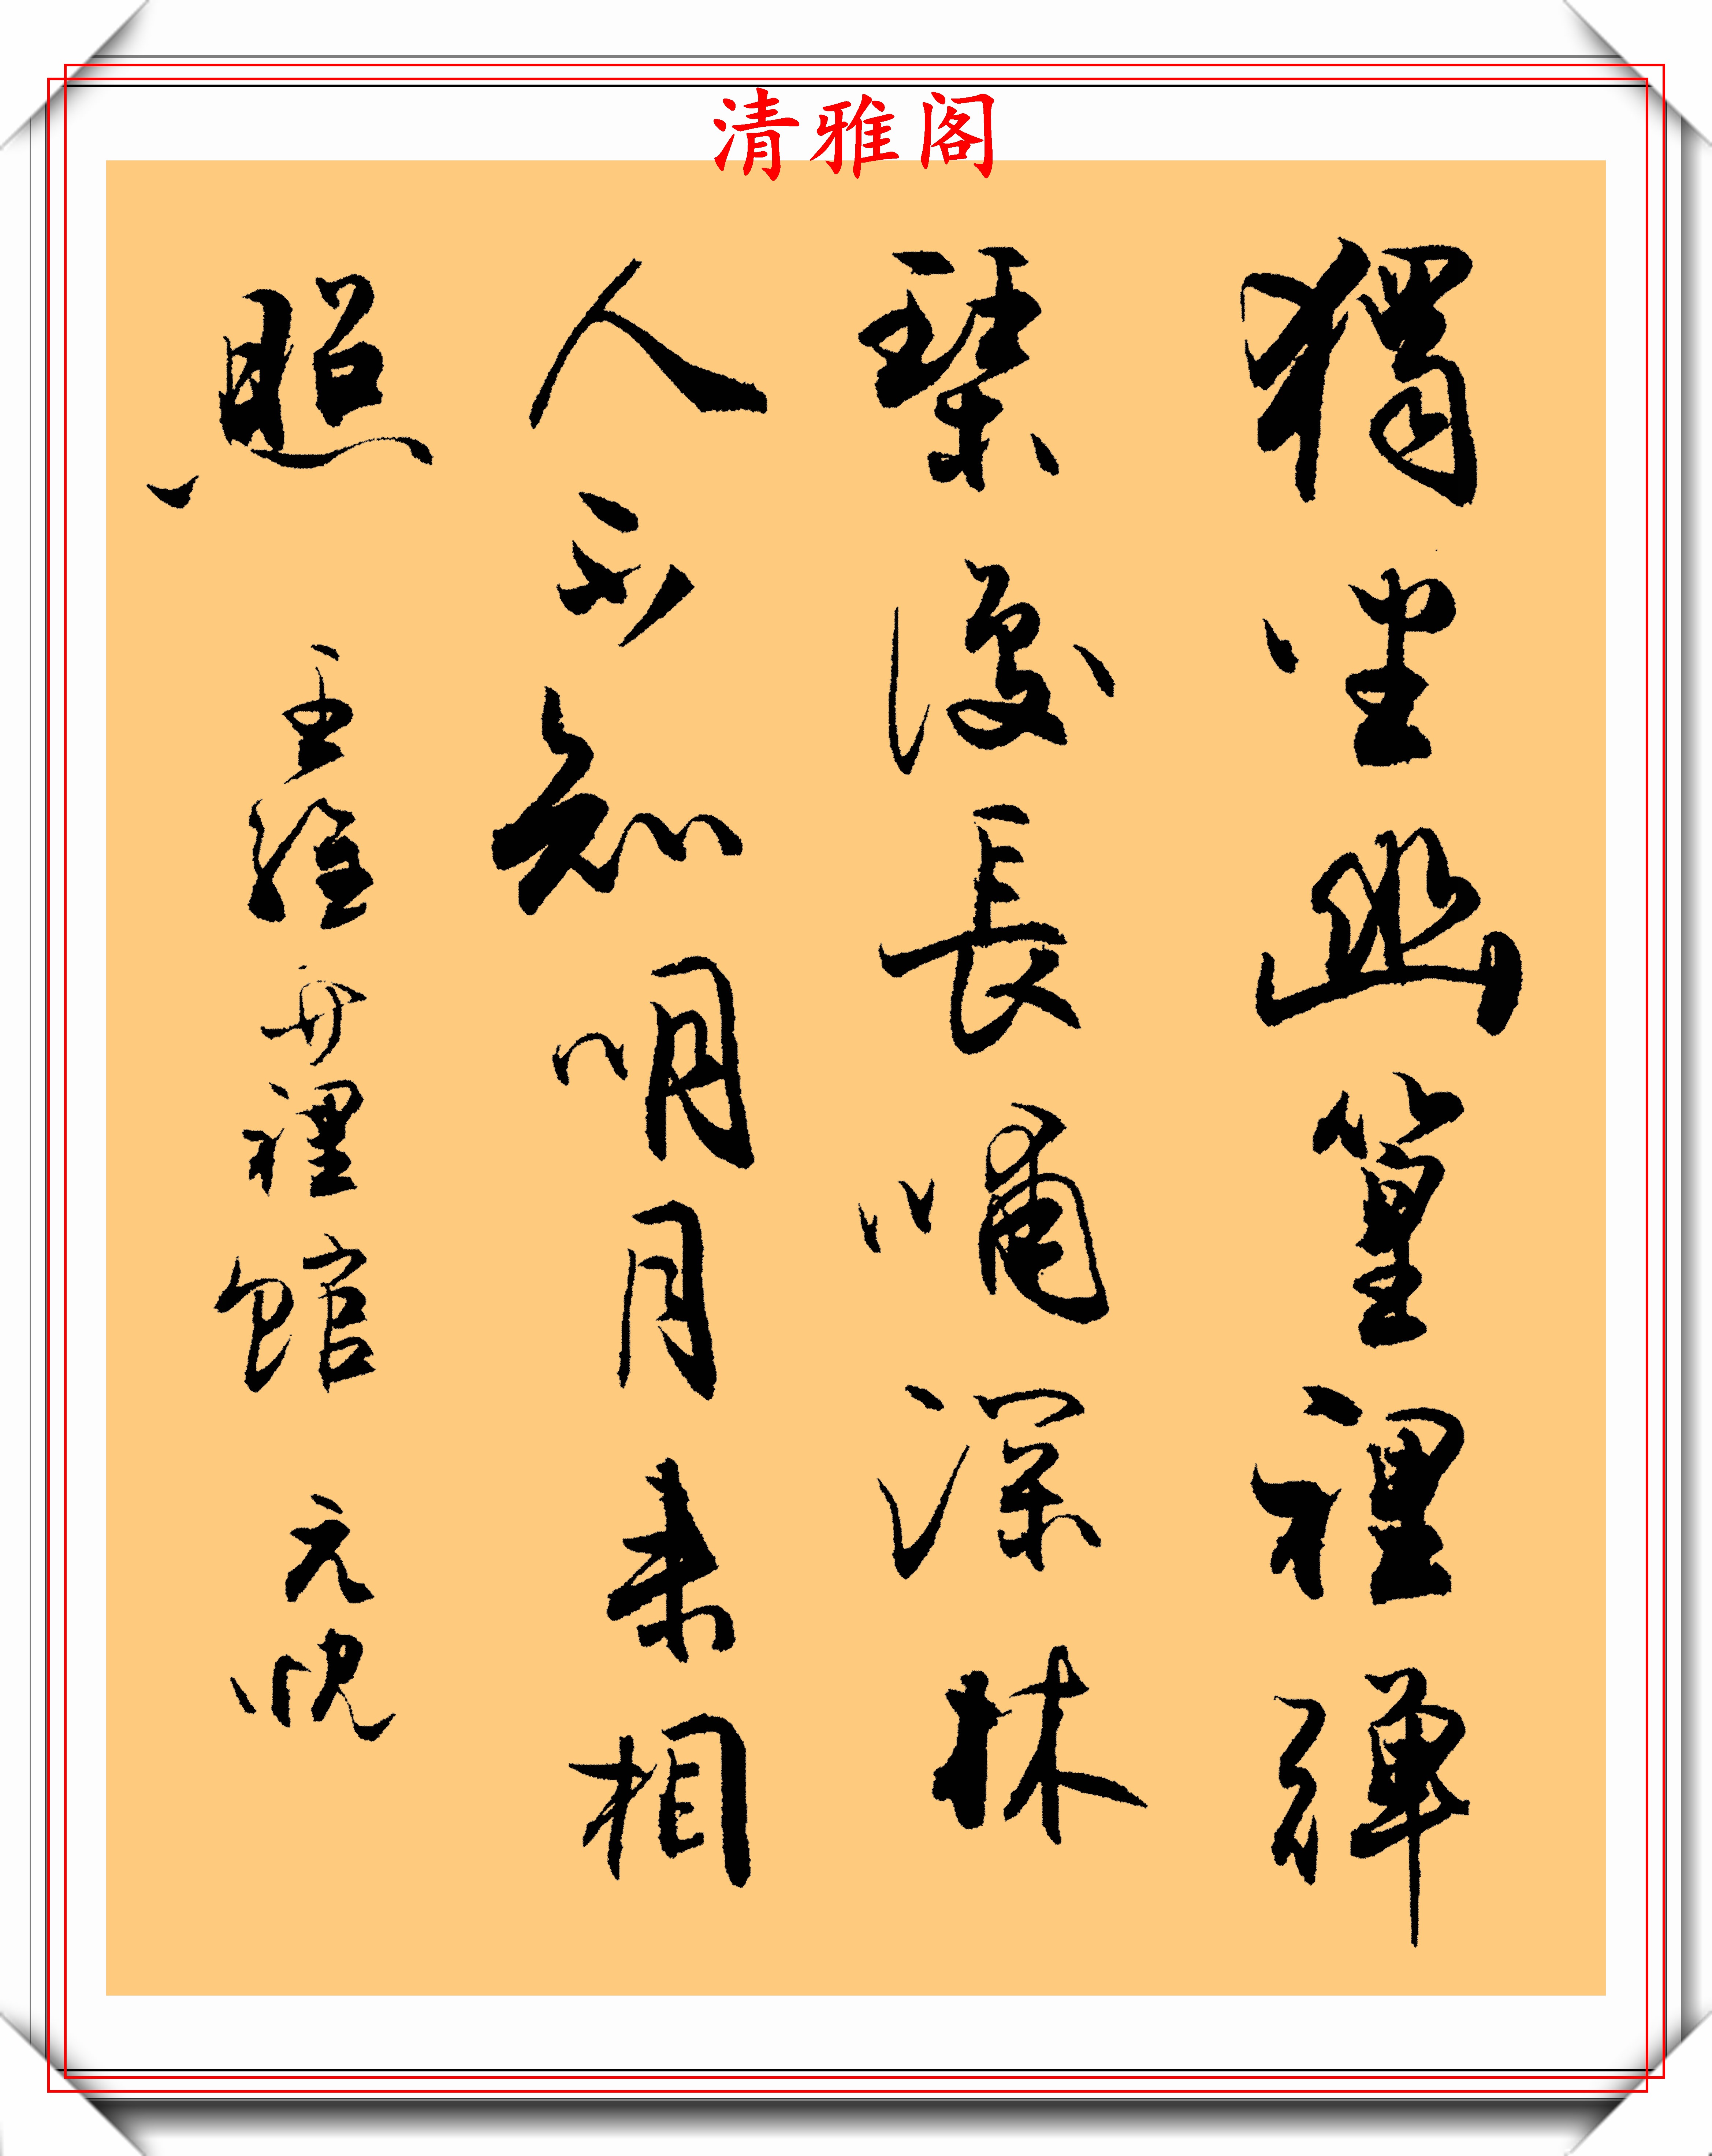 清雅阁
獨坐幽篁裡彈
琴復長嘯深林
人不知明月来相
照 王維 竹裡館 元